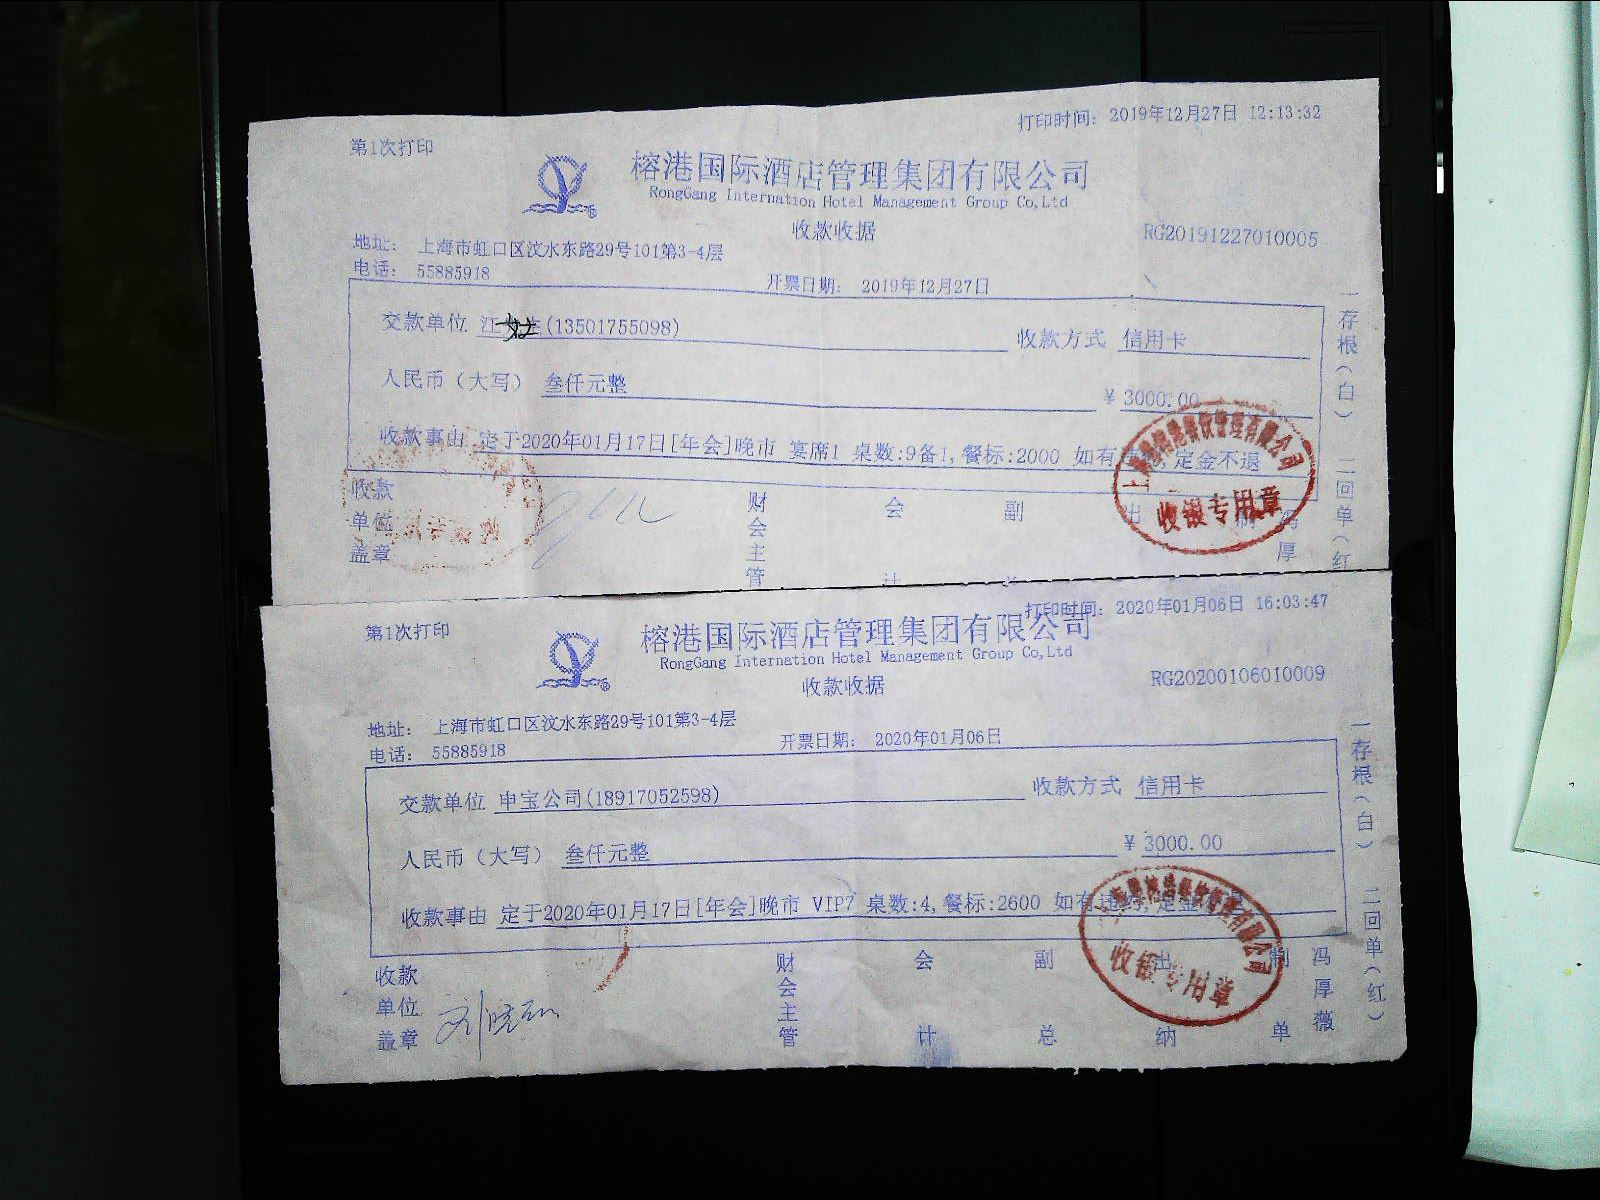 打印时间: 2019年12月27日 12:13:32
第1次打印
榕港国际酒店管理集团有限公司
RongGang Internation Hotel Management Group Co,Ltd
收款收据
RG20191227010005
地址: 上海市虹口区汶水东路29号101第3-4层
电话: 55885918
开票日期: 2019年12月27日
交款单位 江(13501755098)
收款方式 信用卡
人民币(大写) 叁仟元整
¥ 3000.00
收款事由 定于2020年01月17日[年会]晚市 宴席1 桌数:9备1,餐标:2000 如有,定金不退
收银专用章
收款单位盖章
财会主管
会计
副
出
厚
一存根(白) 二回单(红
打印时间: 2020年01月06日 16:03:47
第1次打印
榕港国际酒店管理集团有限公司
RongGang Internation Hotel Management Group Co,Ltd
收款收据
RG20200106010009
地址: 上海市虹口区汶水东路29号101第3-4层
电话: 55885918
开票日期: 2020年01月06日
交款单位 申宝公司(18917052598)
收款方式 信用卡
人民币(大写) 叁仟元整
¥ 3000.00
收款事由 定于2020年01月17日[年会]晚市 VIP7 桌数:4,餐标:2600 如有违约,定金
收银专用章
收款单位盖章
财会主管
会计
副总
出纳
制单
冯厚薇
一存根(白) 二回单(红)